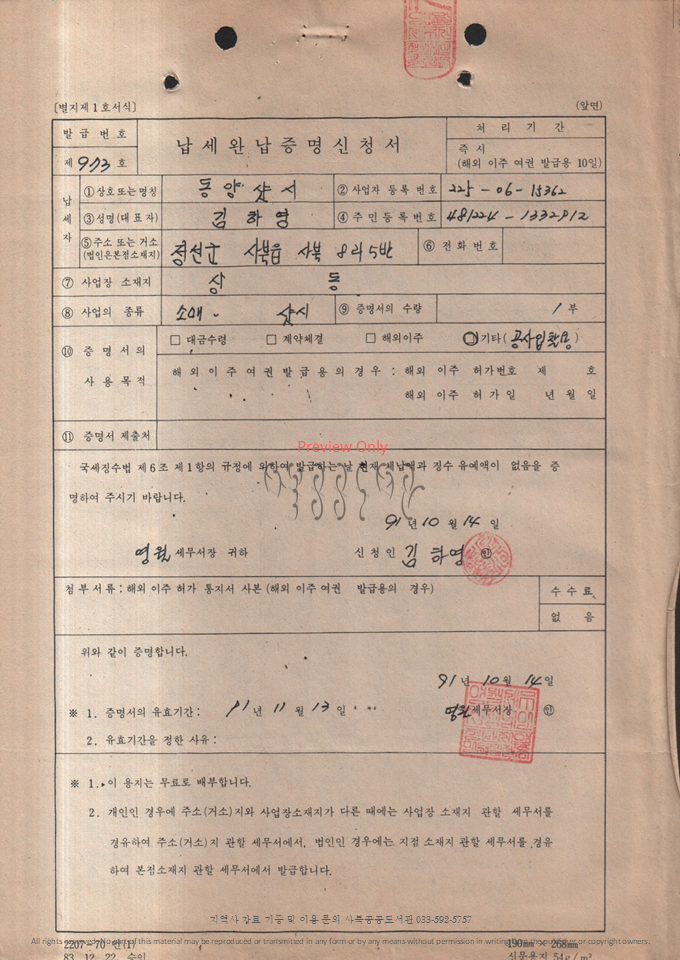 [별지제1호서식]
(앞면)
발급번호
제 973 호
납세완납증명신청서
처리기간
즉시
(해외 이주 여권 발급용 10일)
납세자
①상호또는명칭 동양샷시
②사업자 등록 번호 225-06-15362
③성명(대표자) 김하영
④주민등록번호 481224-1332912
⑤주소 또는 거소
(법인은본점소재지)
정선군 사북읍 사북 8리 5반
⑥전화번호
⑦사업장 소재지 상동
⑧사업의 종류 소매. 샷시
⑨증명서의 수량 1부
⑩증명서의
사용목적
□ 대금수령 □ 제약체결 □ 해외이주 기타(공사입찰용)
해외이주여권발급용의경우: 해외 이주 허가번호 제 호
해외 이주 허가일 년 월 일
⑪증명서 제출처
Preview Only
국세징수법 제6조 제1항의 규정에 의하여 발급하는 날 현재 체납액과 징수 유예액이 없음을 증
명하여 주시기 바랍니다.
91년 10월 14일
영월세무서장 귀하 신청인 김하영 ㊞
첨부서류: 해외 이주 허가 통지서 사본(해외 이주 여권 발급용의 경우)
수수료
없음
위와 같이 증명합니다.
91년 10월 14일
※ 1. 증명서의 유효기간: 91년 11월 13일
영월세무서장 ㊞
2. 유효기간을 정한 사유:
※ 1. 이 용지는 무료로 배부합니다.
2. 개인인 경우에 주소(거소)지와 사업장소재지가 다른 때에는 사업장 소재지 관할 세무서를
경유하여 주소(거소)지 관할 세무서에서, 법인인 경우에는 지점 소재지 관할 세무서를 경유
하여 본점소재지 관할 세무서에서 발급합니다.
지역사 자료 기증 및 이용 문의 사북공공도서관 033-592-5757
All rights reserved. No part of this material may be reproduced or transmitted in any form or by any means without permission in writing from the publisher or copyright owners.
2207-70 민(1)
190㎜×268㎜
83. 12. 22. 승인
신문용지 54g/㎡